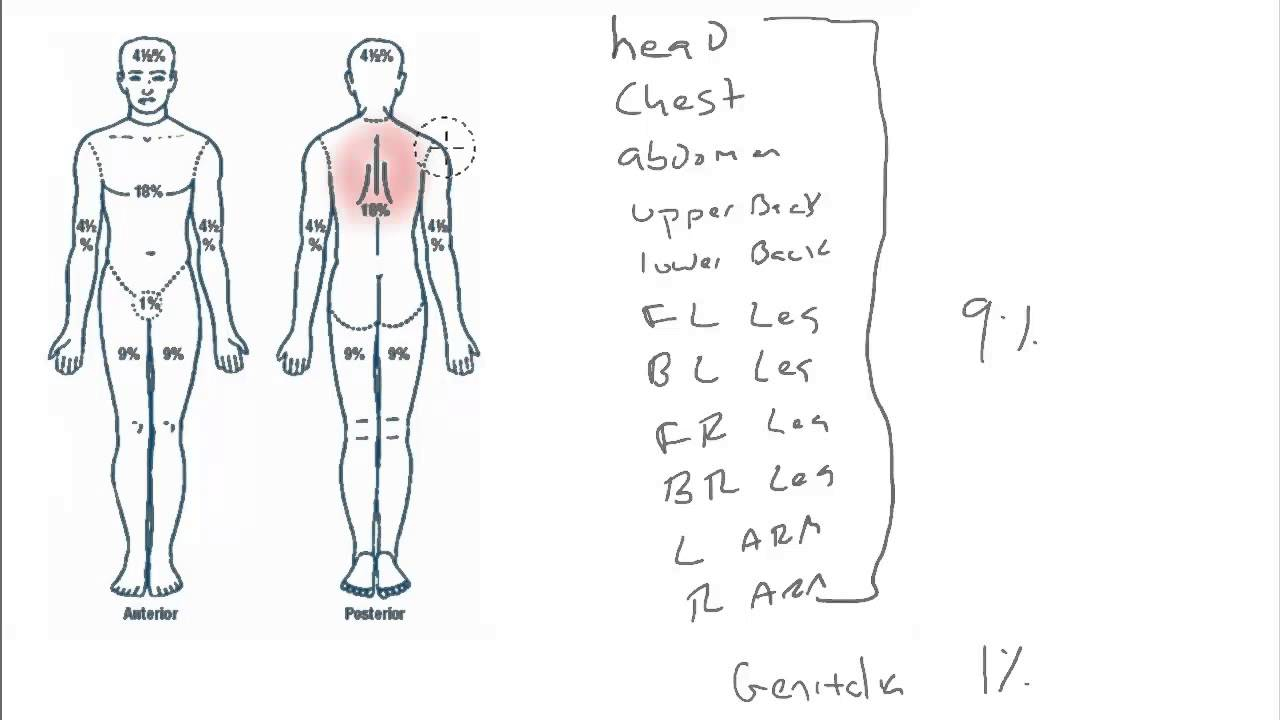 head
Chest
abdomen
upper Back
lower Back
FL Leg
BL Leg
FR Leg
BR Leg
L ARM
R ARM
9%
Genitalia 1%
4½% 4½%
18% 18%
4½% 4½% 4½% 4½%
1%
9% 9% 9% 9%
Anterior Posterior